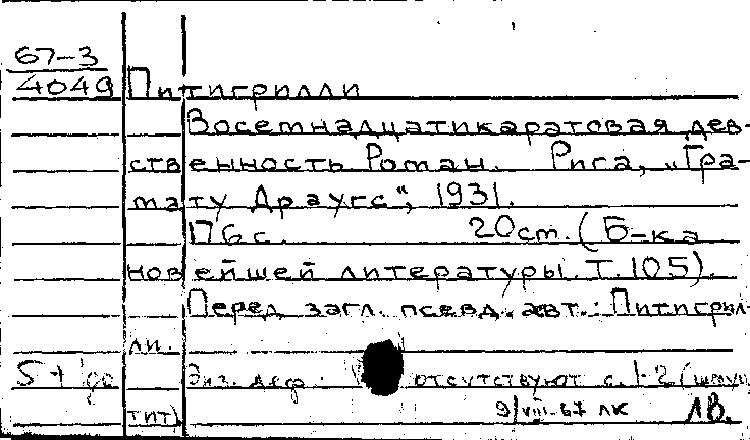 67-3
4049 Питигрилли
Восемнадцатикаратовая дев-
ственность Роман. Рига, „Гра-
мату Драугс", 1931.
176 с. 20 ст. (Б-ка
новейшей литературы. Т. 105).
Перед загл. псевд. авт.: Питигрил-
ли.
Экз. деф.: отсутствуют с. 1-2 (шмуц
тит)
9/VIII-67 ЛК